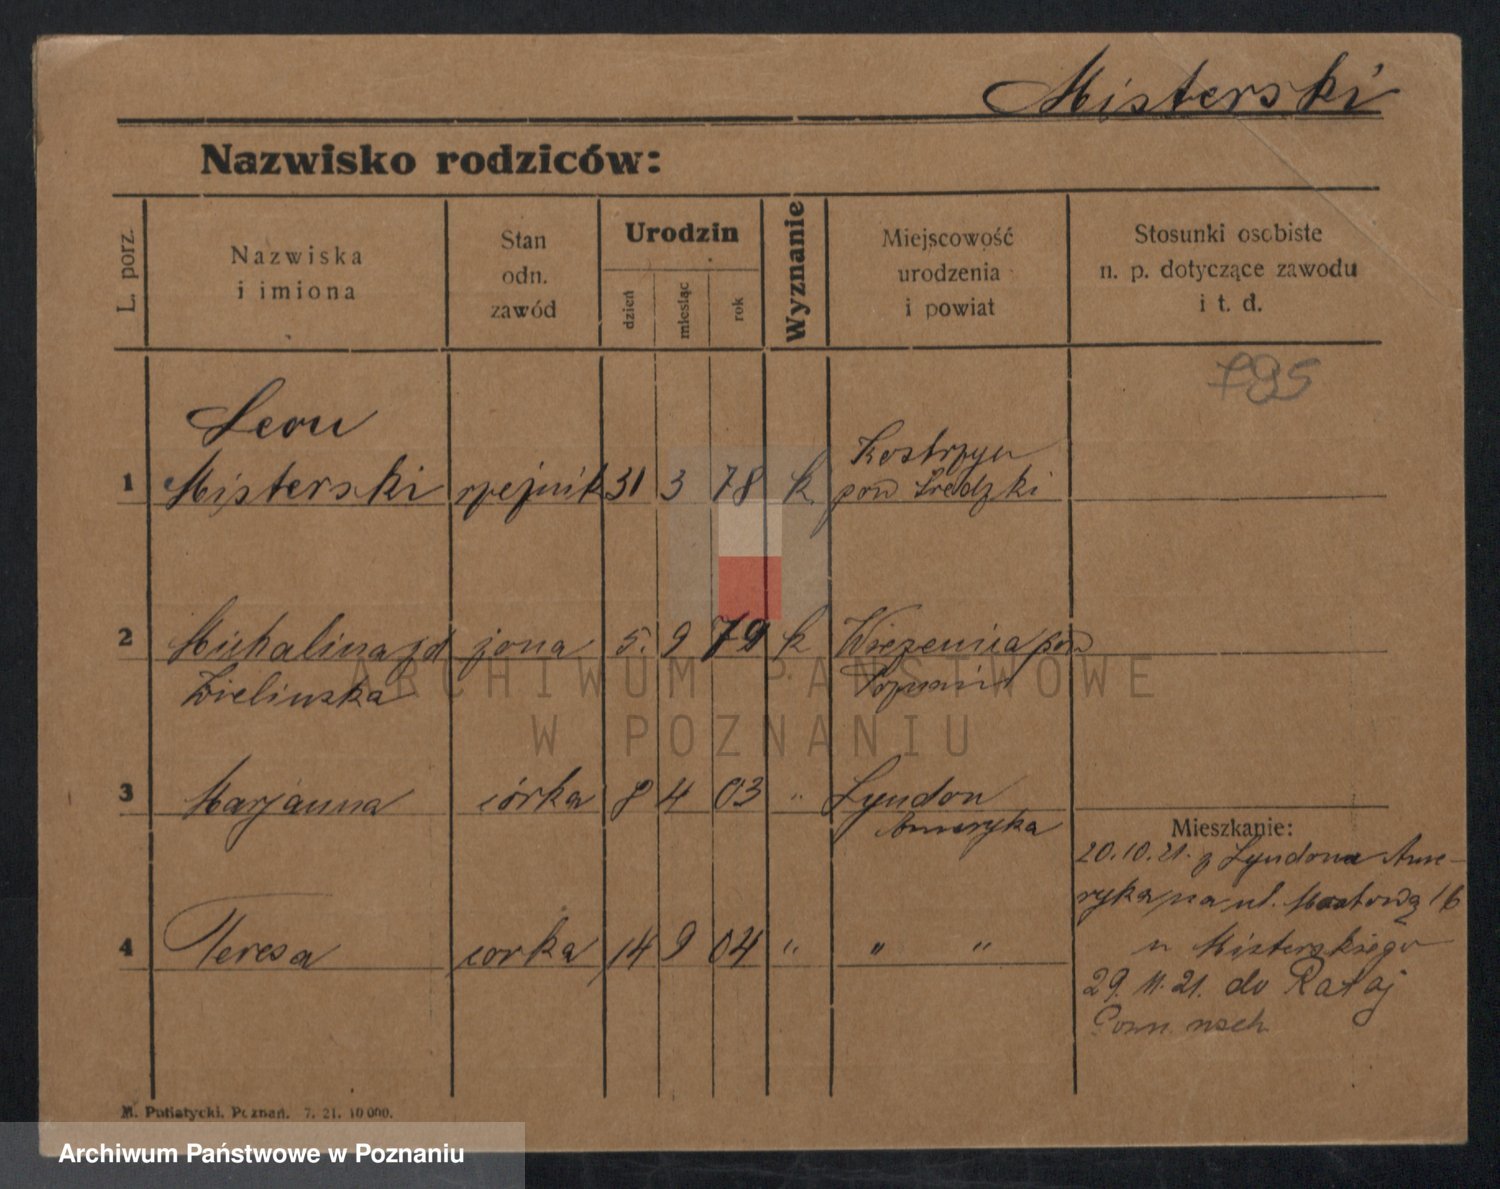 Misterski
Nazwisko rodziców:
L. porz.
Nazwiska
i imiona
Stan
odn.
zawód
Urodzin
dzień
miesiąc
rok
Wyznanie
Miejscowość
urodzenia
i powiat
Stosunki osobiste
n. p. dotyczące zawodu
i t. d.
795
Leon
Kostrzyn
1 Misterski rzeźnik 31 3 78 k. pow Średzki
2 Michalina zd żona 5. 9 79 k Wierzenica pow
Zielinska
3 Marjanna córka 8 4 03 " Lyndon
Ameryka
Mieszkanie:
20.10.21. z Lyndona Ame-
ryka na ul. Mostową 16
4 Teresa corka 14 9 04 " " "
u Misterskiego
29. 11. 21. do Rataj
Pozn. wsch.
M. Putiatycki. Poznań. 7. 21. 10 000.
ARCHIWUM PAŃSTWOWE
W POZNANIU
Archiwum Państwowe w Poznaniu